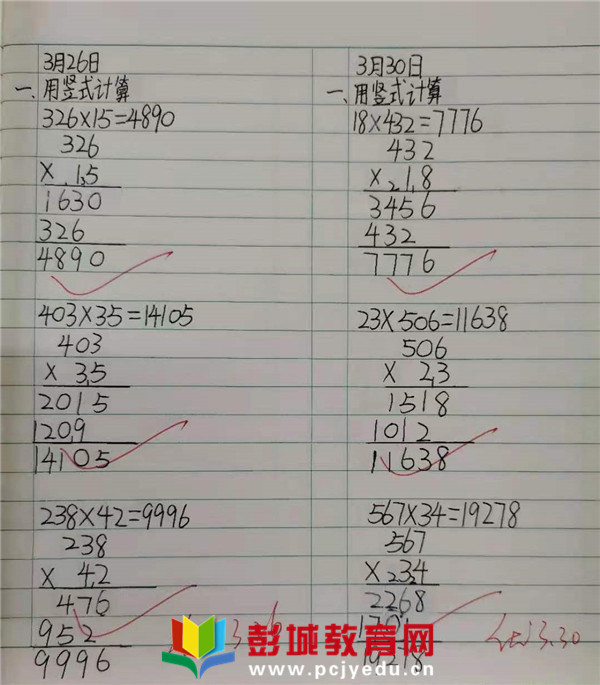 3月26日
一、用竖式计算
326×15=4890
326
× 15
1630
326
4890
403×35=14105
403
× 35
2015
1209
14105
238×42=9996
238
× 42
476
952
9996
3月30日
一、用竖式计算
18×432=7776
432
× 18
3456
432
7776
23×506=11638
506
× 23
1518
1012
11638
567×34=19278
567
× 34
2268
1701
19278
3.26
3.30
彭城教育网
www.pcjyedu.cn